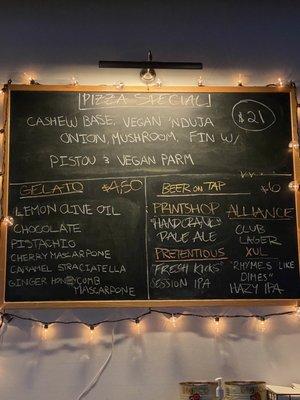 PIZZA SPECIAL
$21
CASHEW BASE, VEGAN 'NDUJA
ONION, MUSHROOM, FIN W/
PISTOU & VEGAN PARM
GELATO $4.50
LEMON OLIVE OIL
CHOCOLATE
PISTACHIO
CHERRY MASCARPONE
CARAMEL STRACIATELLA
GINGER HONEYCOMB
MASCARPONE
BEER ON TAP $6
PRINTSHOP
"HAND CRANK"
PALE ALE
PRETENTIOUS
"FRESH KICKS"
SESSION IPA
ALLIANCE
CLUB
LAGER
XUL
"RHYMES LIKE
DIMES"
HAZY IPA